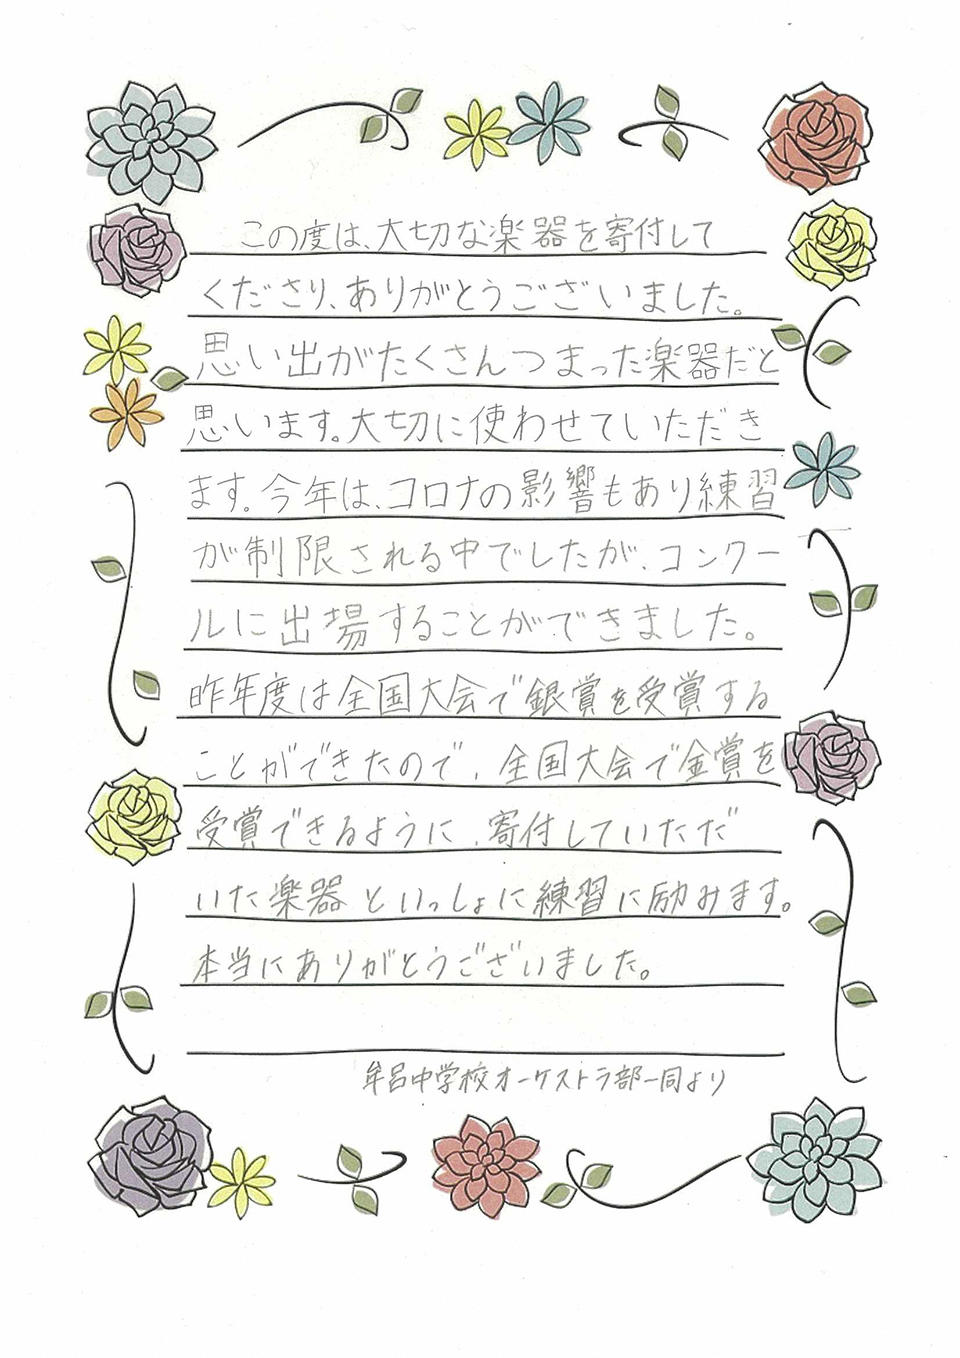 この度は、大切な楽器を寄付して
くださり、ありがとうございました。
思い出がたくさんつまった楽器だと
思います。大切に使わせていただき
ます。今年は、コロナの影響もあり練習
が制限される中でしたが、コンクー
ルに出場することができました。
昨年度は全国大会で銀賞を受賞する
ことができたので、全国大会で金賞を
受賞できるように、寄付していただ
いた楽器といっしょに練習に励みます。
本当にありがとうございました。
牟呂中学校オーケストラ部一同より